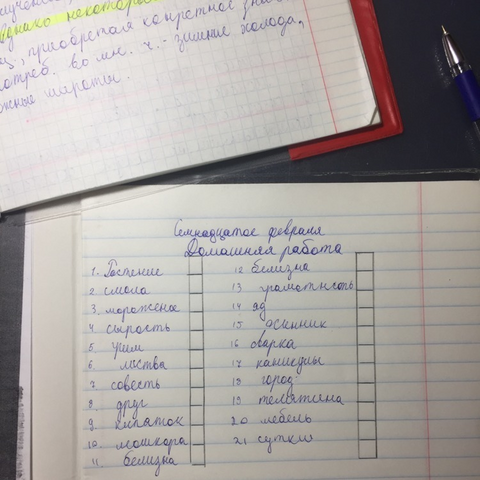 однако некоторо
приобретая конкретное зна
потреб. во мн. ч. - зимние холода,
широты.
Семнадцатое февраля
Домашняя работа
1. Растение
2 смола
3. мороженое
4. сырость
5.
6. листва
7. совесть
8. друг
9. кипяток
10. мошкара
11. белизна
12 белизна
13 грамотность
14 яд
15 осинник
16 оварка
17 каникулы
18 город
19 телятина
20 лебедь
21 сутки